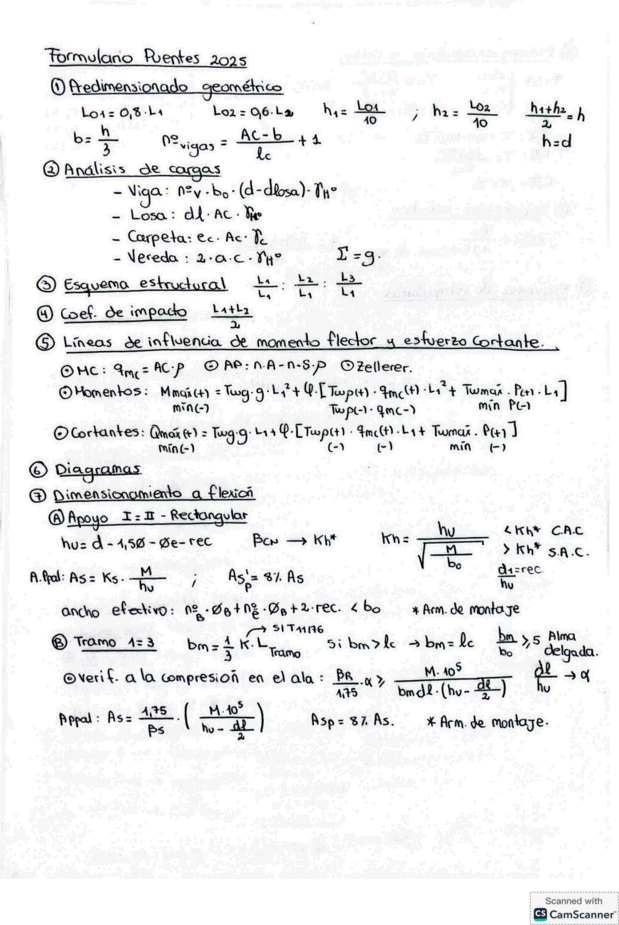 Formulario Puentes 2025
① Predimensionado geométrico
Lo1 = 0,8·L1 Lo2 = 0,6·L2 h1 = Lo1/10 ; h2 = Lo2/10 (h1+h2)/2 = h
b = h/3 nº vigas = (AC-b)/lc + 1 h=d
② Análisis de cargas
- Viga: nºv·bo·(d-dlosa)·γHº
- Losa: dl·AC·γHº
- Carpeta: ec·Ac·γc
- Vereda: 2·a.c·γHº Σ=g.
③ Esquema estructural L1/L1 : L2/L1 : L3/L1
④ Coef. de impado (L1+L2)/2
⑤ Líneas de influencia de momento flector y esfuerzo cortante.
⊙ MC: qmc = AC·p ⊙ AP: n.A-n-S-p ⊙ Zellerer.
⊙ Momentos: Mmax(+) = Twg·g·L1²+φ·[Twp(+)·qmc(+)·L1²+Twmax·P(+)·L1]
min(-) Twp(-)·qmc(-) min P(-)
⊙ Cortantes: Qmax(+) = Twg·g·L1+φ·[Twp(+)·qmc(+)·L1+Twmax·P(+)]
min(-) (-) (-) min (-)
⑥ Diagramas
⑦ Dimensionamiento a flexión
Ⓐ Apoyo I=II - Rectangular
hu = d-1,5Ø-Øe-rec βCN → Kh* Kh = hu/√(M/bo) <Kh* C.A.C
>Kh* S.A.C.
A.Ppal: As = Ks·M/hu ; As'p = 8% As d1=rec/hu
ancho efectivo: nºB·ØB+nºe·ØB+2·rec. < bo * Arm. de montaje
→ SI T11/76
Ⓑ Tramo 1=3 bm = 1/3 K·L Tramo Si bm>lc → bm=lc bm/bo ≥5 Alma delgada.
⊙ Verif. a la compresión en el ala: βR/1,75·α ≥ M·10⁵/(bm dl·(hu-dl/2)) dl/hu → α
Appal: As = 1,75/βs·(M·10⁵/(hu-dl/2)) Asp = 8% As. * Arm. de montaje.
Scanned with
CS CamScanner